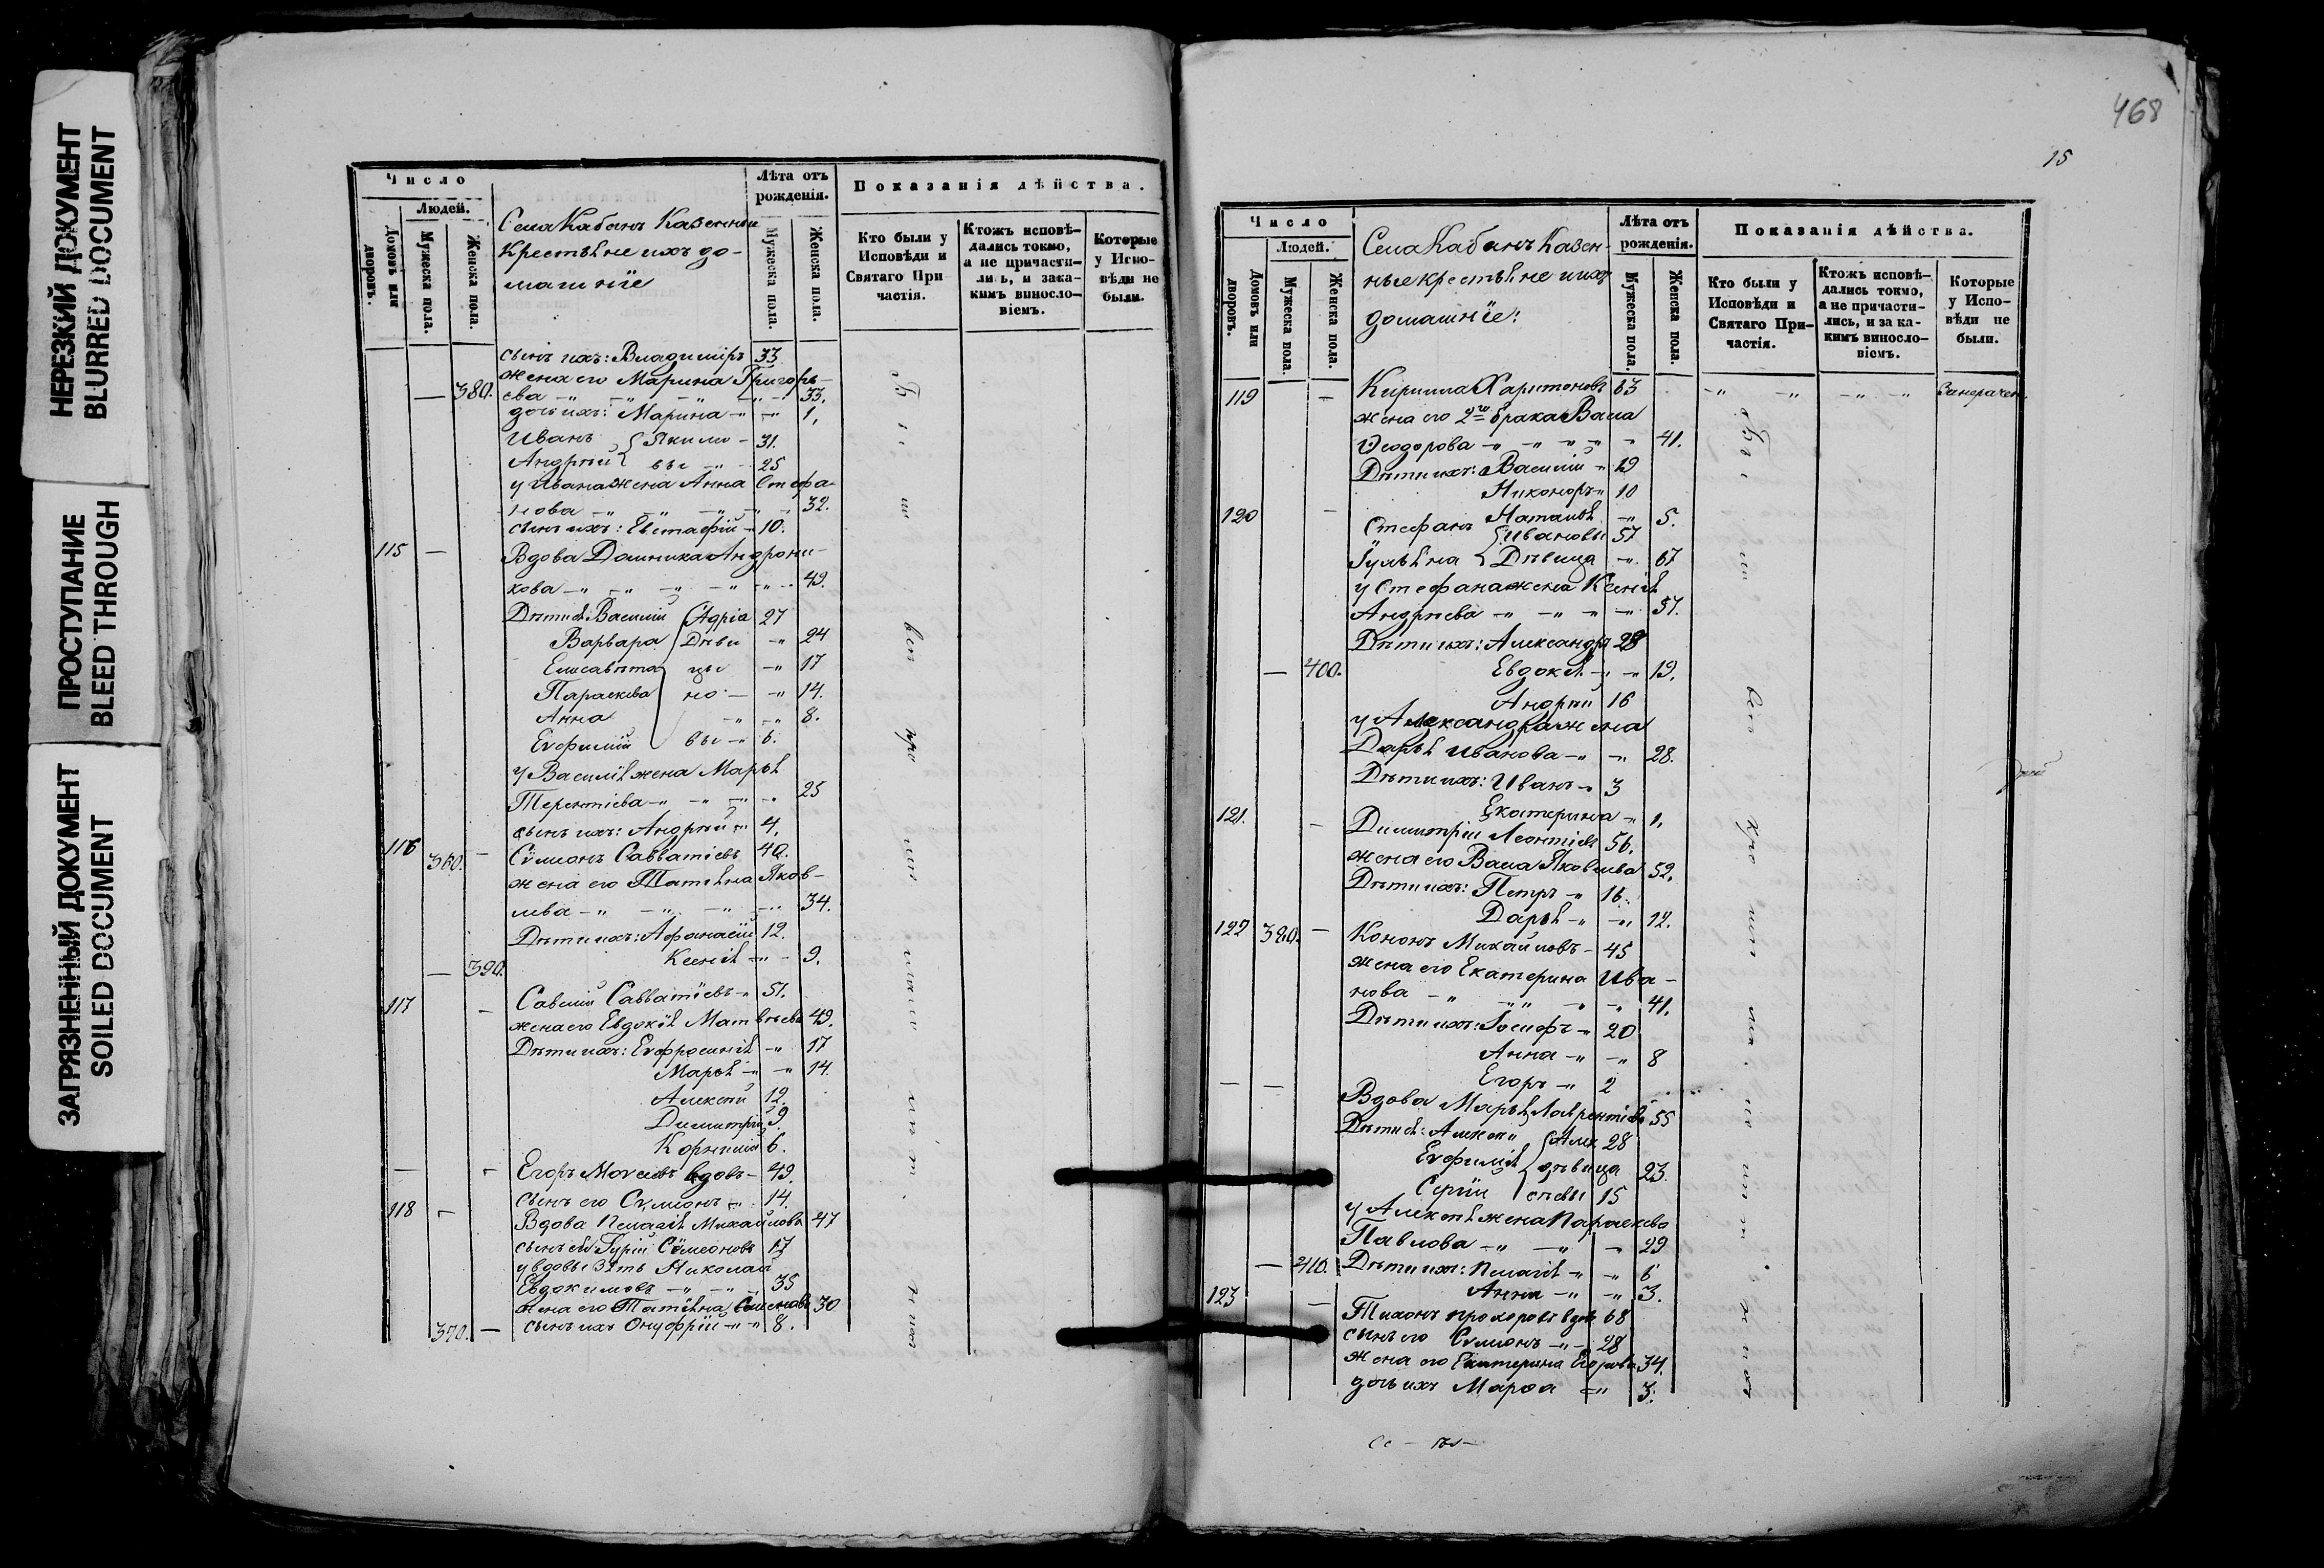 НЕРЕЗКИЙ ДОКУМЕНТ
BLURRED DOCUMENT
ПРОСТУПАНИЕ
BLEED THROUGH
ЗАГРЯЗНЕННЫЙ ДОКУМЕНТ
SOILED DOCUMENT
Число
Людей.
Домовъ или дворовъ.
Мужеска пола.
Женска пола.
Села Кабанъ Казенныи
Крестьяне ихъ до-
машнiе
Лѣта отъ рожденія.
Мужеска пола.
Женска пола.
Показанія дѣйства.
Кто были у Исповѣди и Святаго При частія.
Ктожъ исповѣ-дались токмо, а не причасти-лись, и зака-кимъ винословіемъ.
Которые у Испо-вѣди не были.
сынъ ихъ: Владимiръ 33.
жена его Марина Григорь-
— 380. ева 33.
дочь ихъ: Марина 1,
Иванъ Якимо- 31.
Андрей вы 25
у Ивана жена Анна Стефа-
нова 32.
сынъ ихъ: Евстафiй 10.
115 — Вдова Домника Андрони-
кова 49.
Дѣти ея: Василiй Адрiа 27
Варвара Дѣви 24
Елисавета цы 17
Параскева но 14.
Анна 8.
Евфимiй вы 6.
у Василiя жена Марья
Терентiева 25
сынъ ихъ: Андрей 4.
116 360. — Сѵмеонъ Савватiевъ 40.
жена его Татiяна Яков-
лева 34.
Дѣти ихъ: Афанасiй 12.
Ксенiя 9.
— 390.
117 — Савелiй Савватiевъ 51.
жена его Евдокiя Матвѣева 49.
Дѣти ихъ: Евфросинiя 17
Марья 14.
Алексей 12.
Димитрiй 9.
Корнилiй 6.
— — Егоръ Моѵсеевъ вдовъ 49.
сынъ его Сѵмеонъ 14.
118 — Вдова Пелагiя Михайлова 47
сынъ ея Гурiй Сѵмеоновъ 17
у вдовы зять Николай
Евдокимовъ 35
жена его Татiяна Семенова 30
370. — сынъ ихъ Онуфрiй 8.
468
15
Число
Людей.
Домовъ или дворовъ.
Мужеска пола.
Женска пола.
Села Кабанъ Казен-
ные крестьяне и ихъ
домашнiе:
Лѣта отъ рожденія.
Мужеска пола.
Женска пола.
Показанія дѣйства.
Кто были у Исповѣди и Святаго При-частія.
Ктожъ исповѣ-дались токмо, а не причасти-лись, и за ка-кимъ винословіемъ.
Которые у Испо-вѣди не были.
119 — Кирилла Харитоновъ 63
жена его 2го брака Васа
Ѳеодорова 41.
Дѣти ихъ: Василiй 19
Никоноръ 10
Наталья 5.
120 — Стефанъ Ивановы 57
Iулiяна Дѣвица 67
у Стефана жена Ксенiя
Андреева 57.
Дѣти ихъ: Александръ 28
— 400. Евдокiя 19.
Андрей 16
у Александра жена
Дарья Иванова 28.
Дѣти ихъ: Иванъ 3
Екатерина 1.
121. — Димитрiй Леонтiевъ 56.
жена его Васа Яковлева 52.
Дѣти ихъ: Петръ 16.
Дарья 12.
122 380. — Кононъ Михайловъ 45
жена его Екатерина Ива-
нова 41.
Дѣти ихъ: Iосифъ 20
Анна 8
Егоръ 2
— — Вдова Марья Лаврентiева 55
Дѣти ея: Алексей Але 28
Евфимiя дѣвица 23.
Сергiй сѣевы 15
у Алексея жена Параскева
Павлова 29
— 410. Дѣти ихъ: Пелагiя 6
Анна 3.
123 — Тихонъ Прохоровъ вдовъ 68
сынъ его Сѵмеонъ 28
жена его Екатерина Егорова 34.
дочь ихъ Марѳа 3.